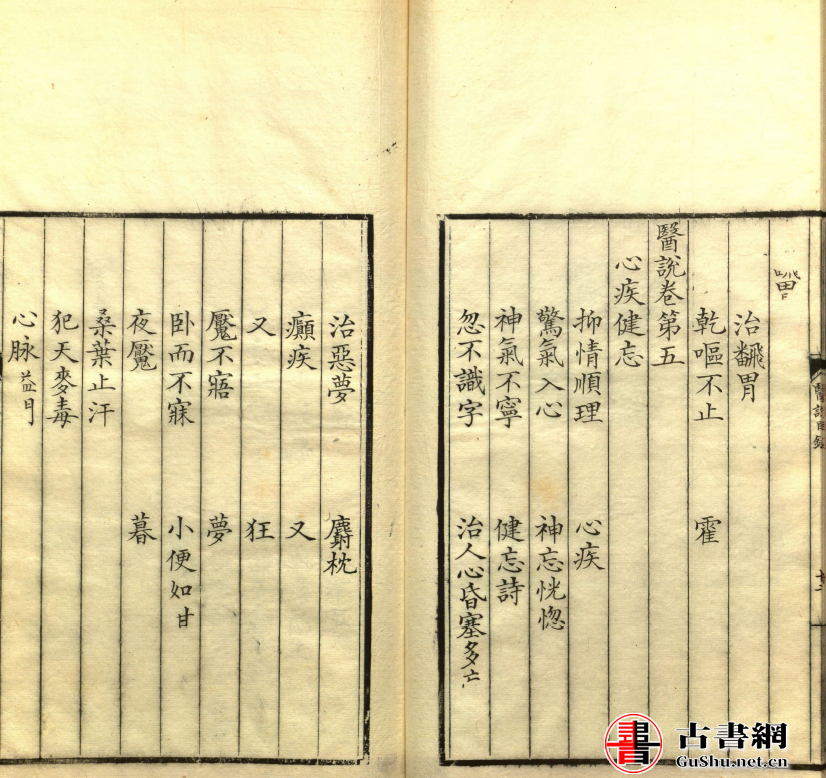 治飜胃
乾嘔不止 霍
醫說卷第五
心疾健忘
抑情順理 心疾
驚氣入心 神忘恍惚
神氣不寧 健忘詩
忽不識字 治人心昏塞多
治惡夢 麝枕
癲疾 又
又 狂
魘不寤 夢
卧而不寐 小便如甘
夜魘 暮
桑葉止汗
犯天麥毒
心脉
醫說目錄
古書網
GuShu.net.cn